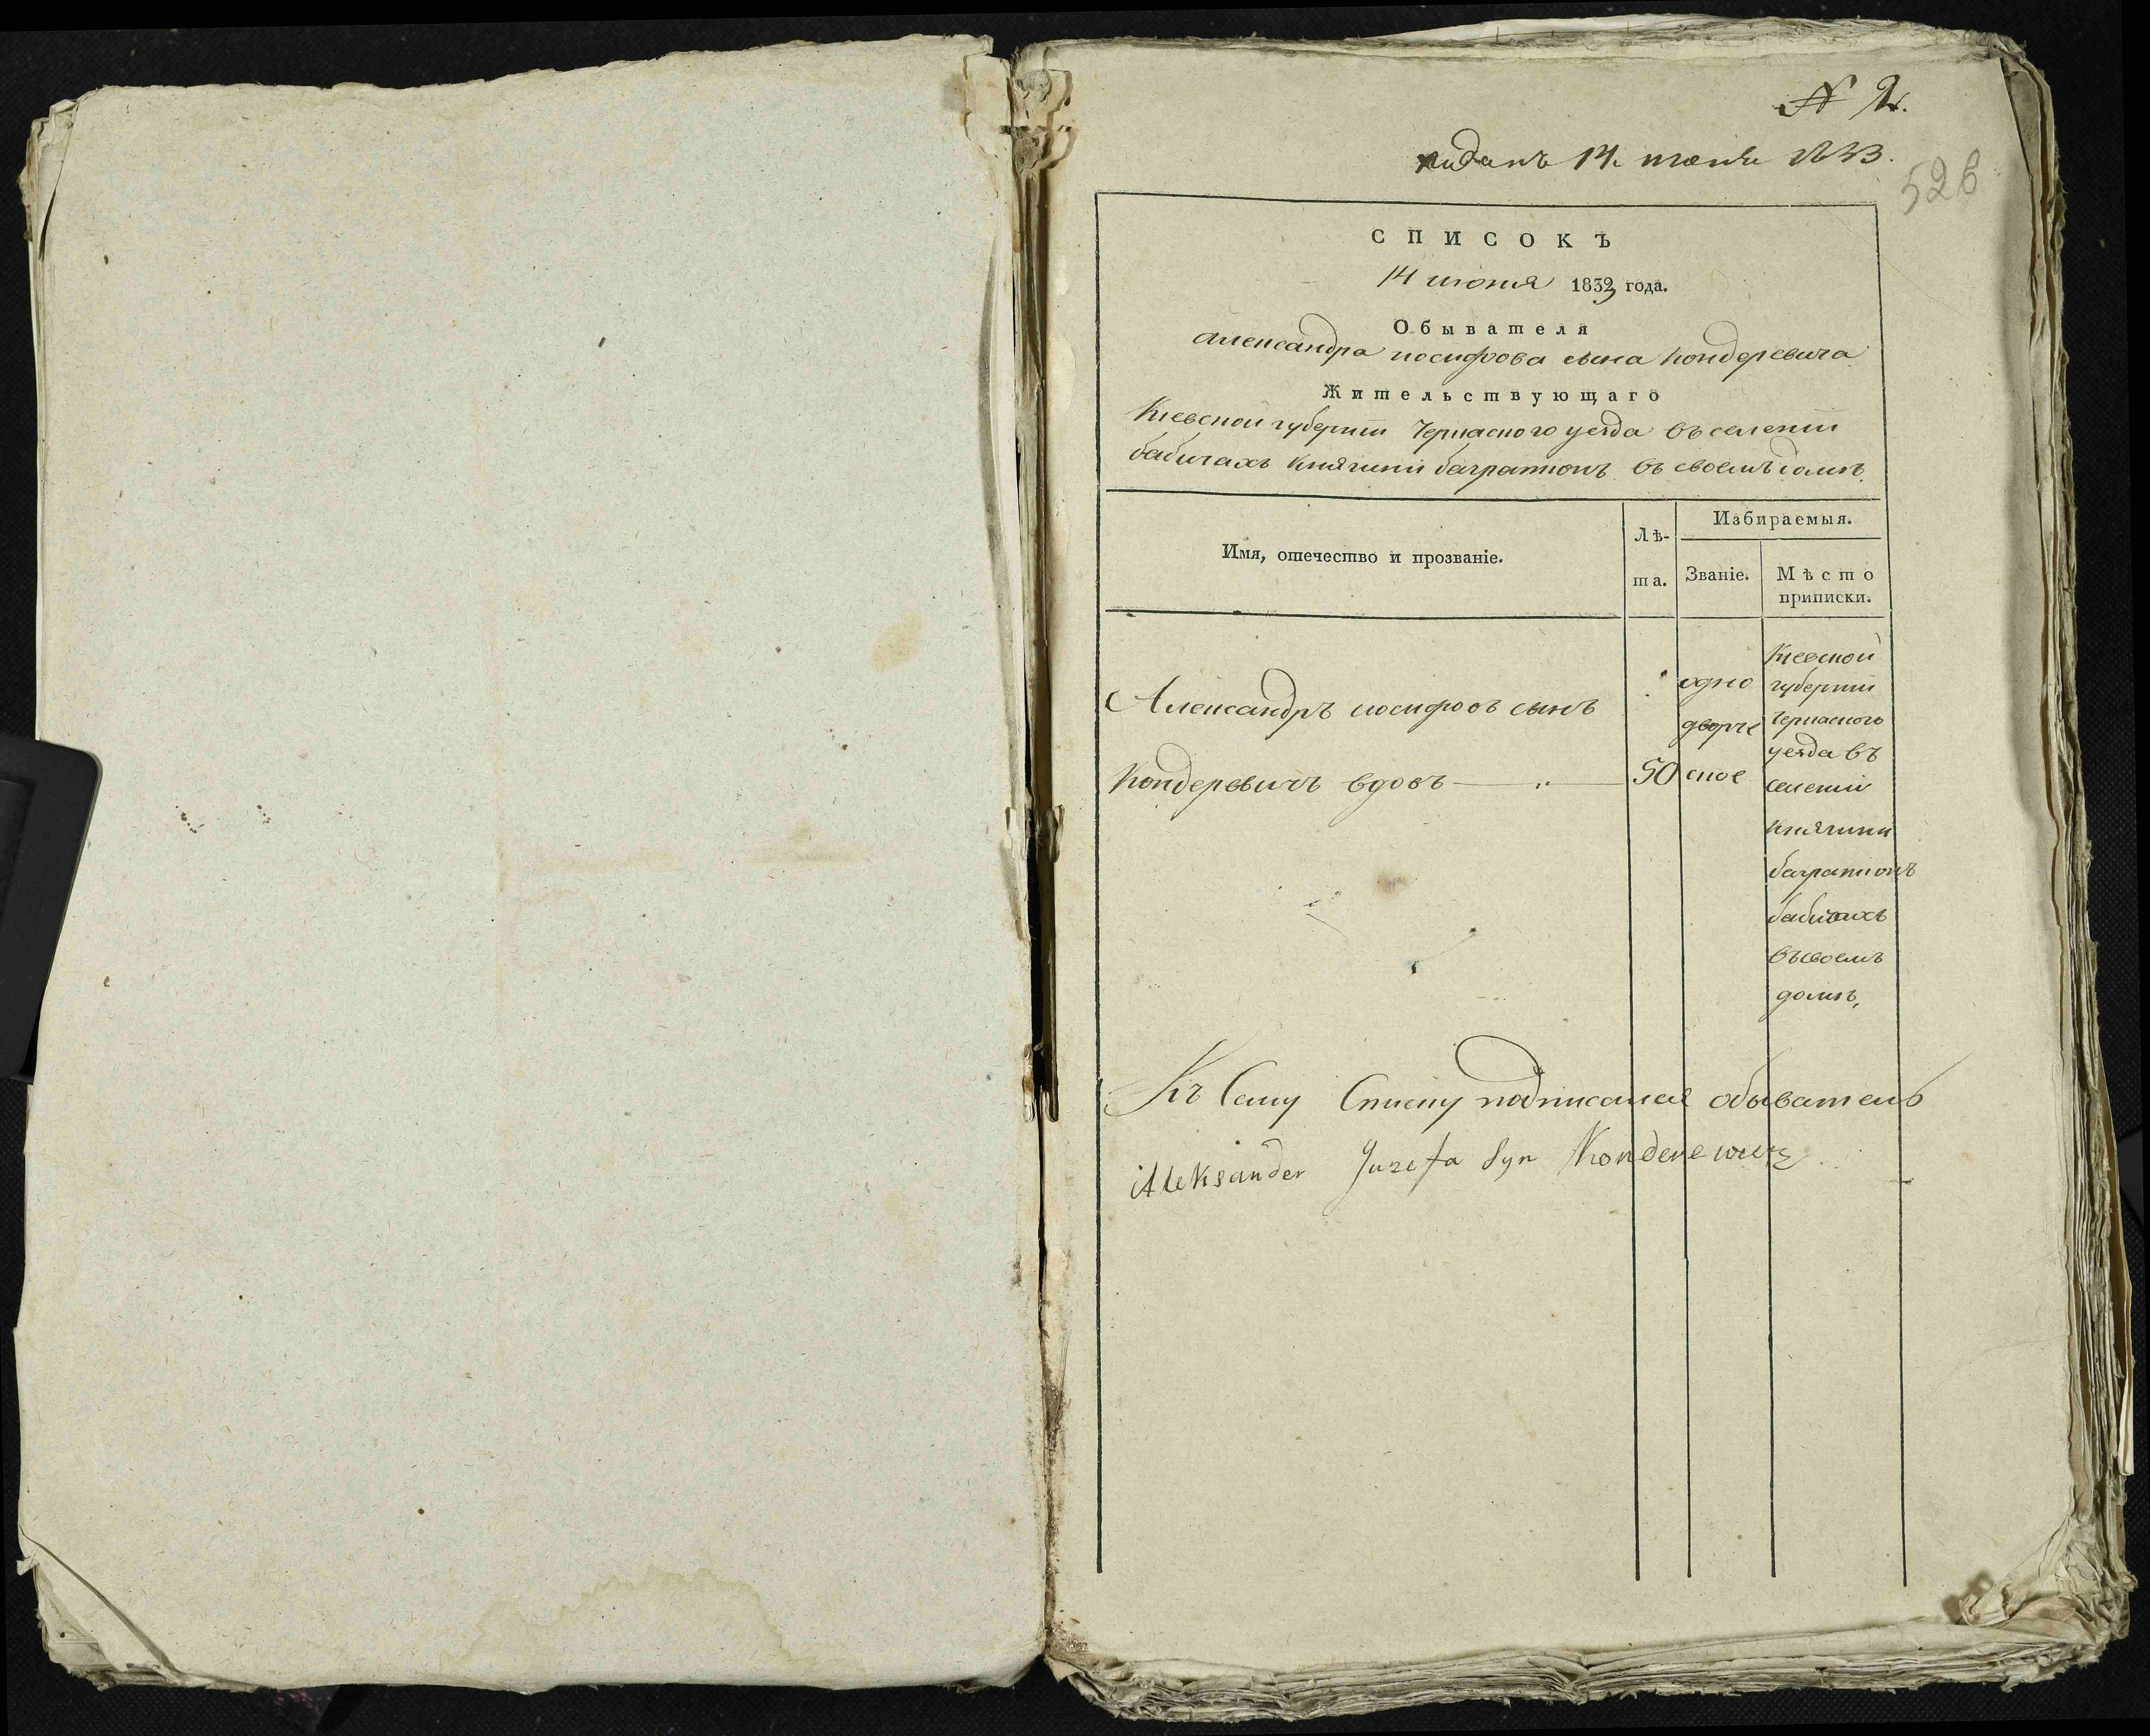 N 2.
поданъ 14 июня 1833.
526
СПИСОКЪ
14 июня 1833 года.
Обывателя
Александра иосифова сына Кондеревича
Жительствующаго
Киевской губернии Черкаского уезда въ селении
бабичахъ княгини багратионъ въ своемъ доме,
Имя, отечество и прозваніе.
Лѣ-
та.
Избираемыя.
Званіе.
Мѣсто
приписки.
Александръ иосифовъ сынъ
Кондеревичъ вдовъ — „ —
50
одно
дворче
ское
Киевской
губернии
Черкаского
уезда въ
селении
княгини
багратионъ
бабичахъ
въ своемъ
домъ,
Къ Сему Списку подписался обыватель
Aleksander Juzefa Syn Konderewicz